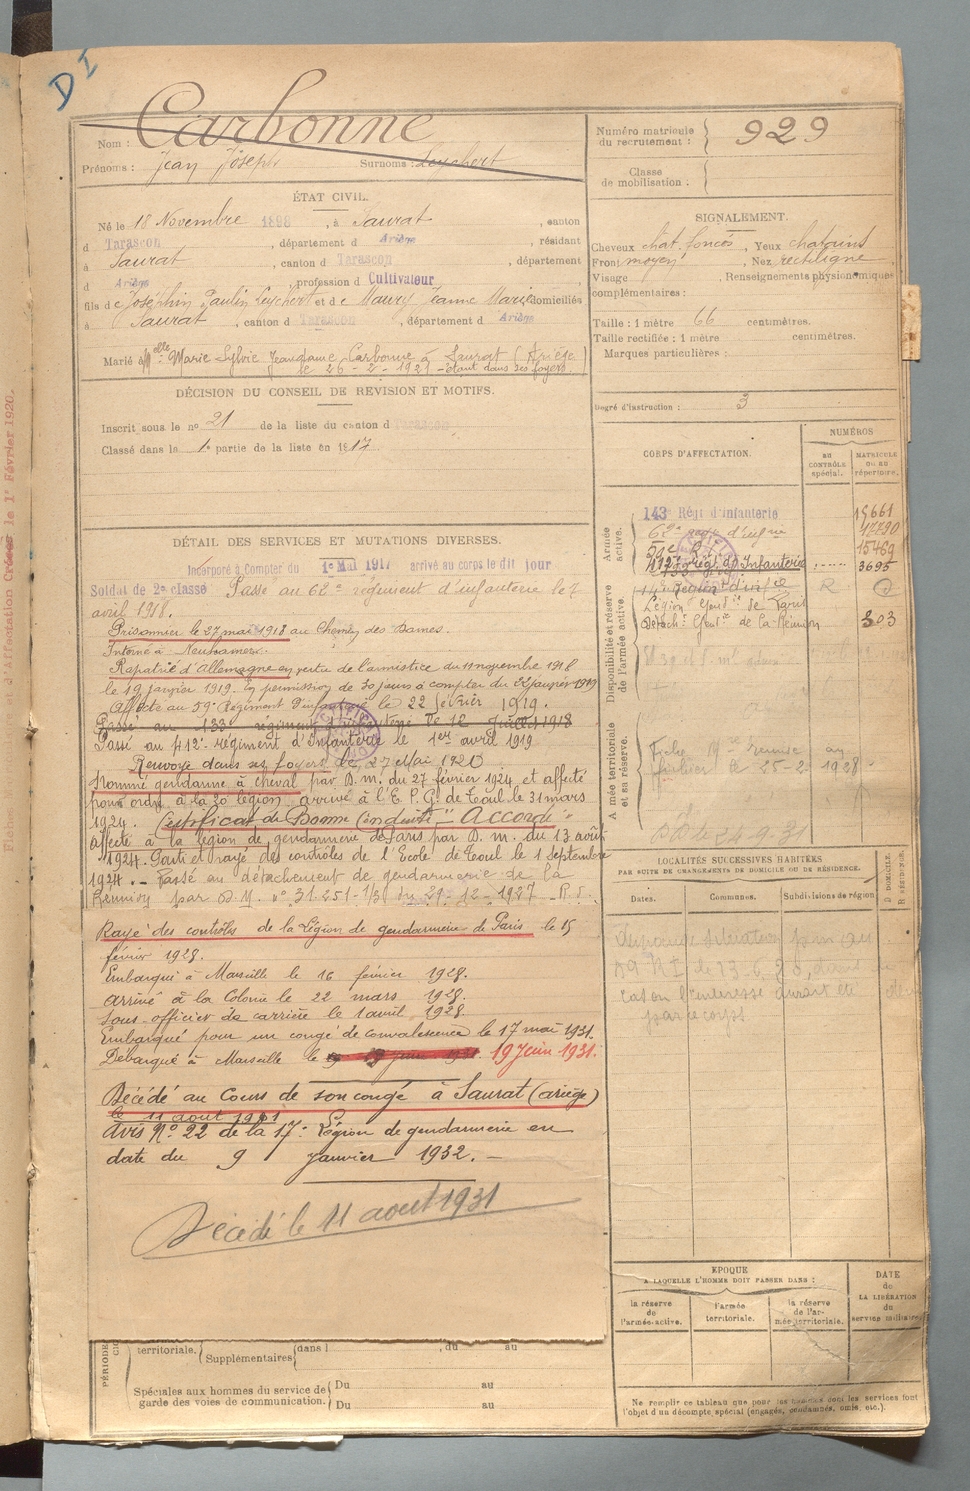 D I
Carbonne
Nom :
Prénoms : Jean Joseph Surnoms : Leychert
Numéro matricule
du recrutement : 929
Classe
de mobilisation :
ÉTAT CIVIL.
Né le 18 Novembre 1898, à Saurat, canton
d Tarascon, département d Ariège, résidant
à Saurat, canton d Tarascon, département
d Ariège, profession d Cultivateur
fils de Joséphin Paulin Leychert et de Maury Jeanne Marie domiciliés
à Saurat, canton d Tarascon, département d Ariège
Marié à Melle Marie Sylvie Jeandame Carbonne à Saurat (Ariège
le 26-2-1921 - étant dans ses foyers.
SIGNALEMENT.
Cheveux chat. foncés, Yeux chatains
Front moyen, Nez rectiligne
Visage , Renseignements physionomiques
complémentaires :
Taille : 1 mètre 66 centimètres.
Taille rectifiée : 1 mètre centimètres.
Marques particulières :
Degré d'instruction : 3
DÉCISION DU CONSEIL DE REVISION ET MOTIFS.
Inscrit sous le no 21 de la liste du canton d Tarascon
Classé dans la 1e partie de la liste en 1917
CORPS D'AFFECTATION.
NUMÉROS
au
CONTRÔLE
spécial.
MATRICULE
ou au
répertoire.
Armée
active.
143e Régt d'Infanterie 15661
62e regt d'infrie 17790
59e R.I. 15469
412e régt d'Infanterie 3695
Disponibilité et réserve
de l'armée active.
Légion Gendie de Paris
Détacht Gendie de la Réunion 303
Armée territoriale
et sa réserve.
Fiche remise au
fichier le 25-2-1928
DÉTAIL DES SERVICES ET MUTATIONS DIVERSES.
Incorporé à Compter du 1er Mai 1917 arrivé au corps le dit jour
Soldat de 2e classe Passé au 62e régiment d'infanterie le 7
avril 1918.
Prisonnier le 27 mai 1918 au Chemin des Dames.
Interné à
Rapatrié d'Allemagne en vertu de l'armistice du 11 novembre 1918
le 19 janvier 1919. En permission de 30 jours à compter du 22 janvier 1919
Affecté au 59e Régiment d'infanterie le 22 février 1919.
Passé au 133e régiment d'infanterie le 12 Juillet 1918
Passé au 412e régiment d'Infanterie le 1er avril 1919
Renvoyé dans ses foyers le 27 Mai 1920
Nommé gendarme à cheval par D.m. du 27 février 1924 et affecté
pour ordre à la 20 légion, arrivé à l'E.P.G. de Toul le 31 mars
1924. Certificat de Bonne Conduite "Accordé"
affecté à la légion de gendarmerie de Paris par D.m. du 13 août
1924. Sorti et rayé des contrôles de l'Ecole de Toul le 1 septembre
1924. - Passé au détachement de gendarmerie de la
Réunion par D.M. no 31.251-1/3 du 29-12-1927
Rayé des contrôles de la Légion de gendarmerie de Paris le 15
février 1928.
Embarqué à Marseille le 16 février 1928.
arrivé à la Colonie le 22 mars 1928.
Sous officier de carrière le 1 avril 1928.
Embarqué pour un congé de convalescence le 17 mai 1931.
Débarqué à Marseille le 19 Juin 1931.
Décédé au Cours de son congé à Saurat (ariège)
le 11 aout 1931
Avis No 22 de la 17e Légion de gendarmerie en
date du 9 janvier 1932. -
Décédé le 11 aout 1931
LOCALITÉS SUCCESSIVES HABITÉES
PAR SUITE DE CHANGEMENTS DE DOMICILE OU DE RÉSIDENCE.
Dates.
Communes.
Subdivisions de région
D. DOMICILE.
R. RÉSIDENCE.
par le corps
EPOQUE
A LAQUELLE L'HOMME DOIT PASSER DANS :
la réserve
de
l'armée active.
l'armée
territoriale.
la réserve
de l'ar-
mée territoriale.
DATE
de
LA LIBÉRATION
du
service militaire.
territoriale. Supplémentaires dans l , du au
Spéciales aux hommes du service de
garde des voies de communication.
Du au
Du au
Ne remplir ce tableau que pour les hommes dont les services font
l'objet d'un décompte spécial (engagés, condamnés, omis, etc.).